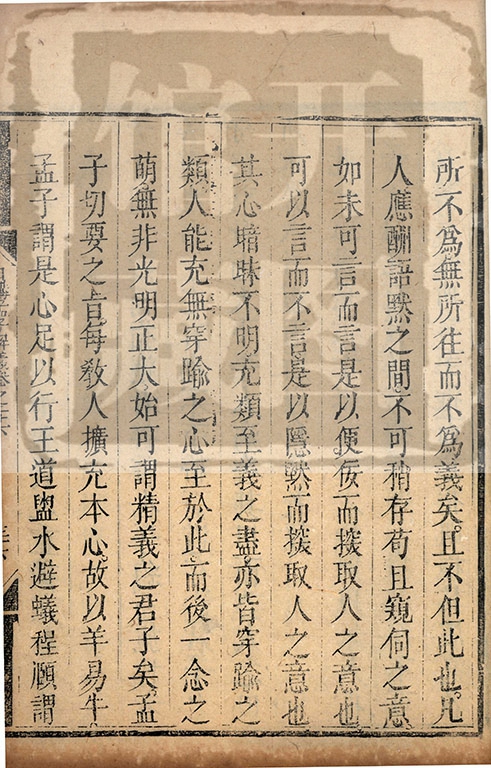 所不爲無所往而不爲義矣且不但此也凡
人應酬語默之間不可稍存苟且窺伺之意
如未可言而言是以便佞而探取人之意也
可以言而不言是以隱默而探取人之意也
其心暗昧不明充類至義之盡亦皆穿踰之
類人能充無穿踰之心至於此而後一念之
萌無非光明正大始可謂精義之君子矣孟
子切要之旨每敎人擴充本心故以羊易牛
孟子謂是心足以行王道盥水避蟻程頤謂